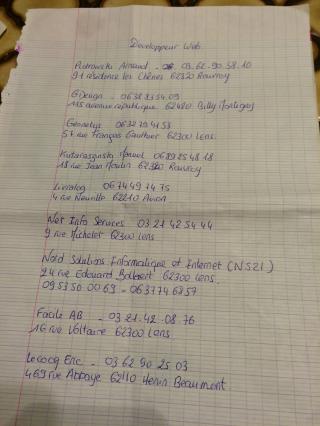 Developpeur Web
Piotrowski Arnaud - 03.62.90.58.10
91 résidence les Chênes 62320 Rouvroy
GDesign - 0638835409
115 avenue république 62480 Billy Montigny
Geonetys 0632794153
57 rue François Gauthier 62300 Lens.
Manuel 0689254818
18 rue Jean Moulin 62320 Rouvroy
0674497475
4 rue Neuville 62210 Avion
Net Info Services 03 21 42 54 44
9 rue Michelet 62300 Lens
Nord Solutions Informatique et Internet (NS2I)
24 rue Edouard Bollaert 62300 Lens
09 53 50 00 69 - 0637746857
Facile AB - 03.21.42.08.76
16 rue Voltaire 62300 Lens
Lecocq Eric - 03 62 90 25 03
469 rue Abbaye 62110 Henin Beaumont